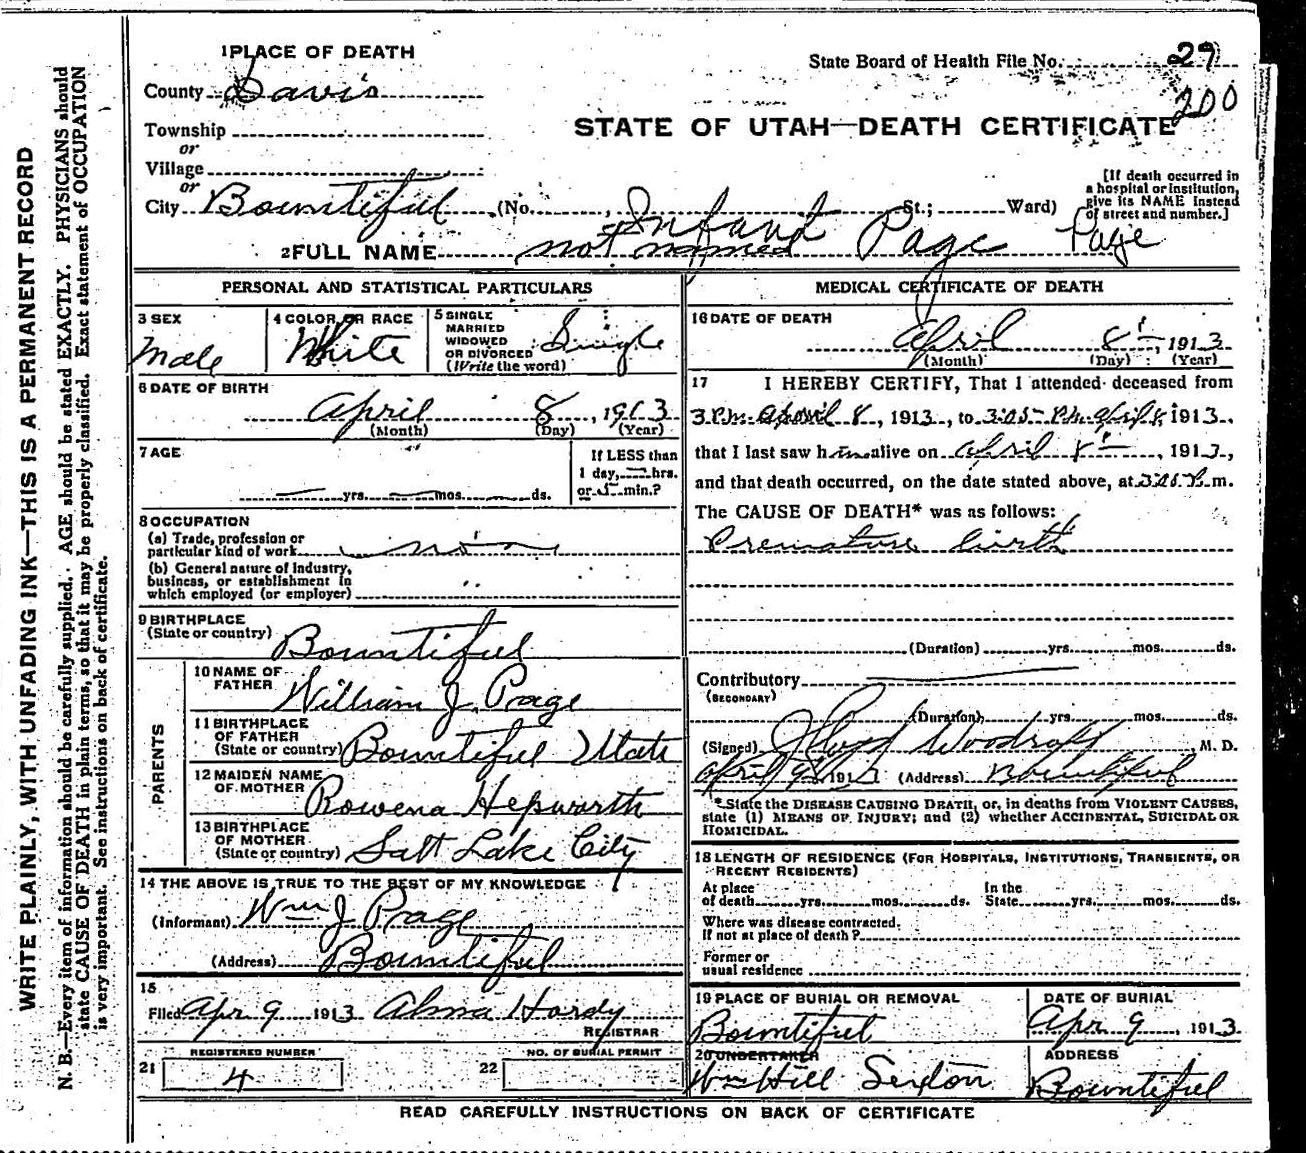 WRITE PLAINLY, WITH UNFADING INK—THIS IS A PERMANENT RECORD
N. B.—Every item of information should be carefully supplied. AGE should be stated EXACTLY. PHYSICIANS should
state CAUSE OF DEATH in plain terms, so that it may be properly classified. Exact statement of OCCUPATION
is very important. See instructions on back of certificate.
1 PLACE OF DEATH
State Board of Health File No. 29
200
County Davis
STATE OF UTAH—DEATH CERTIFICATE
Township
or
Village
or
City Bountiful (No. , St.; Ward)
[If death occurred in
a hospital or institution,
give its NAME instead
of street and number.]
Infant
2 FULL NAME not named Page Page
PERSONAL AND STATISTICAL PARTICULARS
3 SEX
Male
4 COLOR OR RACE
White
5 SINGLE
MARRIED
WIDOWED
OR DIVORCED
(Write the word)
Single
6 DATE OF BIRTH
April 8, 1913
(Month) (Day) (Year)
7 AGE
yrs. mos. ds.
If LESS than
1 day, hrs.
or 5 min.?
8 OCCUPATION
(a) Trade, profession or
particular kind of work
(b) General nature of industry,
business, or establishment in
which employed (or employer)
9 BIRTHPLACE
(State or country) Bountiful
PARENTS
10 NAME OF
FATHER William J. Page
11 BIRTHPLACE
OF FATHER
(State or country) Bountiful Utah
12 MAIDEN NAME
OF MOTHER Rowena Hepworth
13 BIRTHPLACE
OF MOTHER
(State or country) Salt Lake City
14 THE ABOVE IS TRUE TO THE BEST OF MY KNOWLEDGE
(Informant) Wm J Page
(Address) Bountiful
15
Filed Apr 9 1913 Alma Hardy
REGISTRAR
REGISTERED NUMBER
21 4
NO. OF BURIAL PERMIT
22
MEDICAL CERTIFICATE OF DEATH
16 DATE OF DEATH
April 8, 1913
(Month) (Day) (Year)
17 I HEREBY CERTIFY, That I attended deceased from
3 P.m. April 8, 1913, to 3:05 P.m. April 8, 1913,
that I last saw him alive on April 8, 1913,
and that death occurred, on the date stated above, at 3:05 P. m.
The CAUSE OF DEATH* was as follows:
Premature birth
(Duration) yrs. mos. ds.
Contributory
(SECONDARY)
(Duration) yrs. mos. ds.
(Signed) Woodruff, M. D.
April 9, 1913 (Address) Bountiful
*State the DISEASE CAUSING DEATH, or, in deaths from VIOLENT CAUSES,
state (1) MEANS OF INJURY; and (2) whether ACCIDENTAL, SUICIDAL OR
HOMICIDAL.
18 LENGTH OF RESIDENCE (FOR HOSPITALS, INSTITUTIONS, TRANSIENTS, OR
RECENT RESIDENTS)
At place
of death yrs. mos. ds.
In the
State yrs. mos. ds.
Where was disease contracted.
If not at place of death?
Former or
usual residence
19 PLACE OF BURIAL OR REMOVAL
Bountiful
DATE OF BURIAL
Apr 9, 1913
20 UNDERTAKER
Wm Hill Sexton
ADDRESS
Bountiful
READ CAREFULLY INSTRUCTIONS ON BACK OF CERTIFICATE